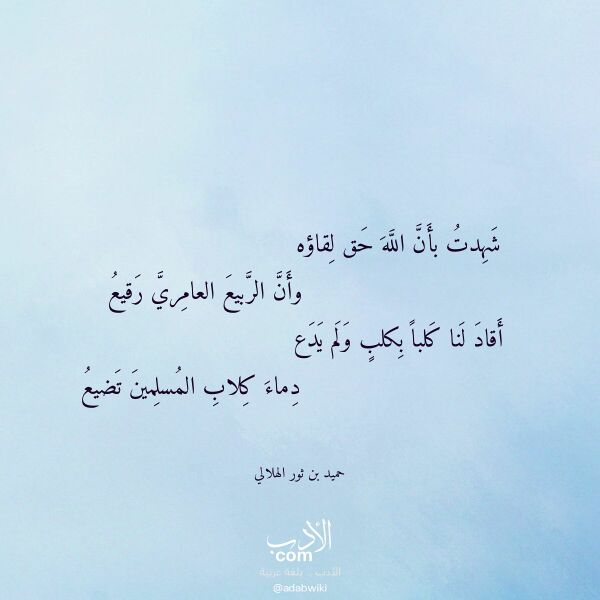 شَهِدتُ بأَنَّ اللَّهَ حَق لِقاؤه
وأَنَّ الرَّبيعَ العامِريَّ رَقيعُ
أَقادَ لَنا كَلباً بِكلبٍ وَلَم يَدَع
دِماءَ كِلابِ المُسلِمينَ تَضيعُ
حميد بن ثور الهلالي
الأدب
com
الأدب .. بلغة عربية
@adabwiki